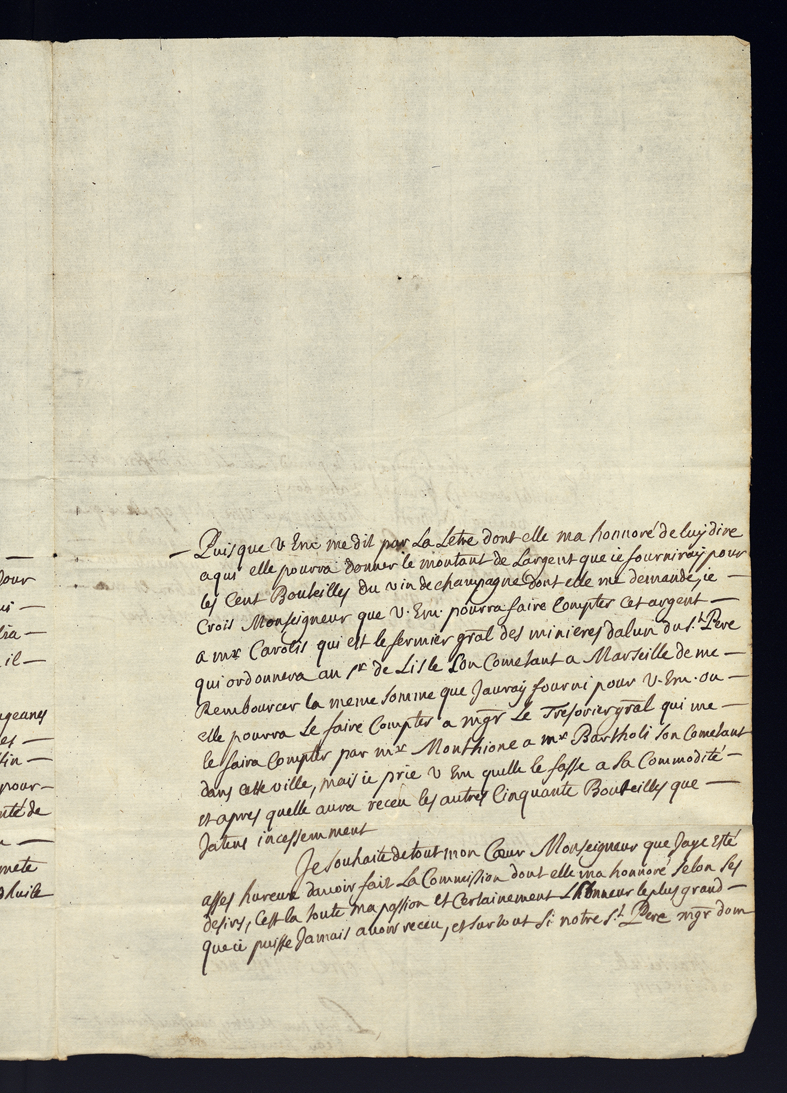 our
il —
geans
es —
lin —
pour —
nté de
mete
dhuile
— Puisque V Em me dit par La Letre dont elle ma honnoré de luy dire
a qui elle pourra donner le montant de Largent que ie fourniray pour
les Cent Bouteilles du vin de champagne dont elle me demande, ie —
Crois Monseigneur que V. Em. pourra faire Compter cet argent —
a mr Carolis qui est le fermier gral des minieres dalun du st Pere
qui ordonnera au sr de Lisle son Cometant a Marseille de me —
Rembourcer la meme somme que Jauray fourni pour V. Em. ou —
elle pourra Le faire Compter a mgr Le Tresorier gral qui me —
le faira Compter par mr Monthione a mr Bartholi son Cometant
dans cette ville, mais ie prie V Em quelle le fasse a sa Commodité —
et apres quelle aura receu les autres Cinquante Bouteilles que —
Jatens incessemment
Je souhaite de tout mon Cœur Monseigneur que Jaye Esté
asses hureux davoir fait La Commission dont elle ma honnoré selon ses
desirs, Cest la toute ma passion et Certainement Lhonneur le plus grand —
que ie puisse Jamais avoir receu, et surtout si notre st Pere mgr dom